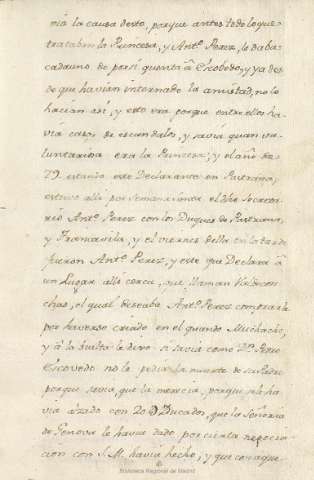 nia la causa desto, porque antes todo lo que
trataban la Princesa, y Antº Perez, le daba
cada uno de por si quenta á Escobedo, y ya des
de que havian internado la amistad, no lo
hacian asi, y esto era porque entre ellos ha-
via cosas de escandalos, y savia quan vo-
luntariosa era la Princesa; y el año de
79. estando este Declarante en Pastrana,
estuvo alli por Semana Santa el dho Secreta-
rio Antº Perez con los Duques de Pastrana,
y Francavila, y el viernes della en la tarde
fueron Antº Perez, y este que Declara á
un Lugar alli cerca, que llaman Valdecon-
chas, el qual deseaba Antº Perez comprarla
por haverse criado en el quando Muchacho,
y á la buelta le dixo si savia como Dn. Pedro
Escovedo no le pedia la muerte de su Padre
porque savia, que la merecia, porque se le ha-
via alzado con 20 D Ducados, que la Señoria
de Genova le havia dado por cierta negocia-
cion con S. M. havia hecho, y que con aque-
Biblioteca Regional de Madrid